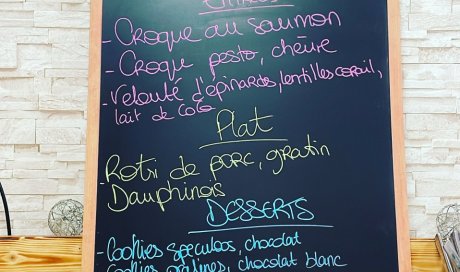 ENTRÉES
- Croque au saumon
- Croque pesto, chèvre
- Velouté d'épinards, lentilles corail,
lait de coco
Plat
- Roti de porc, gratin
Dauphinois
DESSERTS
- Cookies speculos, chocolat
Cookies pralines, chocolat blanc